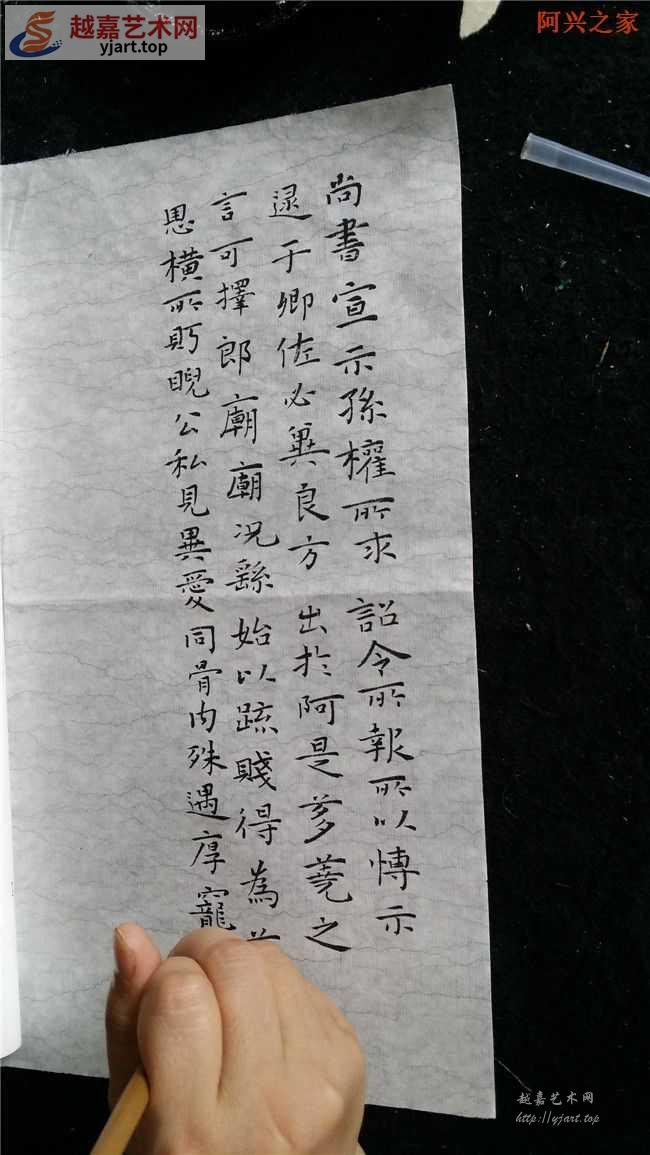 越嘉艺术网
yjart.top
阿兴之家
尚書宣示孫權所求 詔令所報所以博示
逮于卿佐必冀良方 出於阿是芻蕘之
言可擇郎廟廟况繇始以疏賤得為
恩橫所眄睨公私見異愛同骨肉殊遇厚寵
越嘉艺术网
http://yjart.top